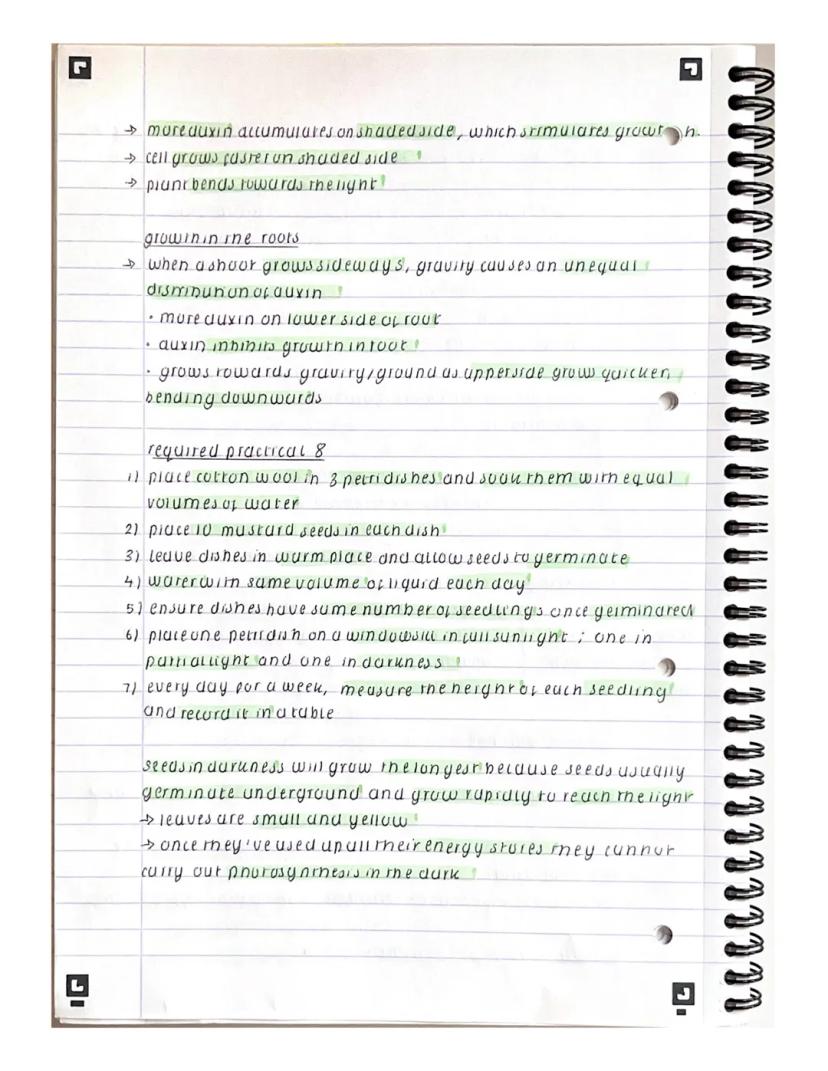 → more auxin accumulates on shaded side, which stimulates growth.
→ cell grows faster on shaded side
→ plant bends towards the light
growth in the roots
→ when a shoot grows sideways, gravity causes an unequal
distribution of auxin
• more auxin on lower side of root
• auxin inhibits growth in root
• grows towards gravity/ground as upperside grow quicker,
bending downwards
required practical 8
1) place cotton wool in 3 petri dishes and soak them with equal
volumes of water
2) place 10 mustard seeds in each dish
3) leave dishes in warm place and allow seeds to germinate
4) water with same volume of liquid each day
5) ensure dishes have same number of seedlings once germinated
6) place one petri dish on a windowsill in full sunlight ; one in
partial light and one in darkness
7) every day for a week, measure the height of each seedling
and record it in a table
seeds in darkness will grow the longest because seeds usually
germinate underground and grow rapidly to reach the light
→ leaves are small and yellow
→ once they've used up all their energy stores they cannot
carry out photosynthesis in the dark